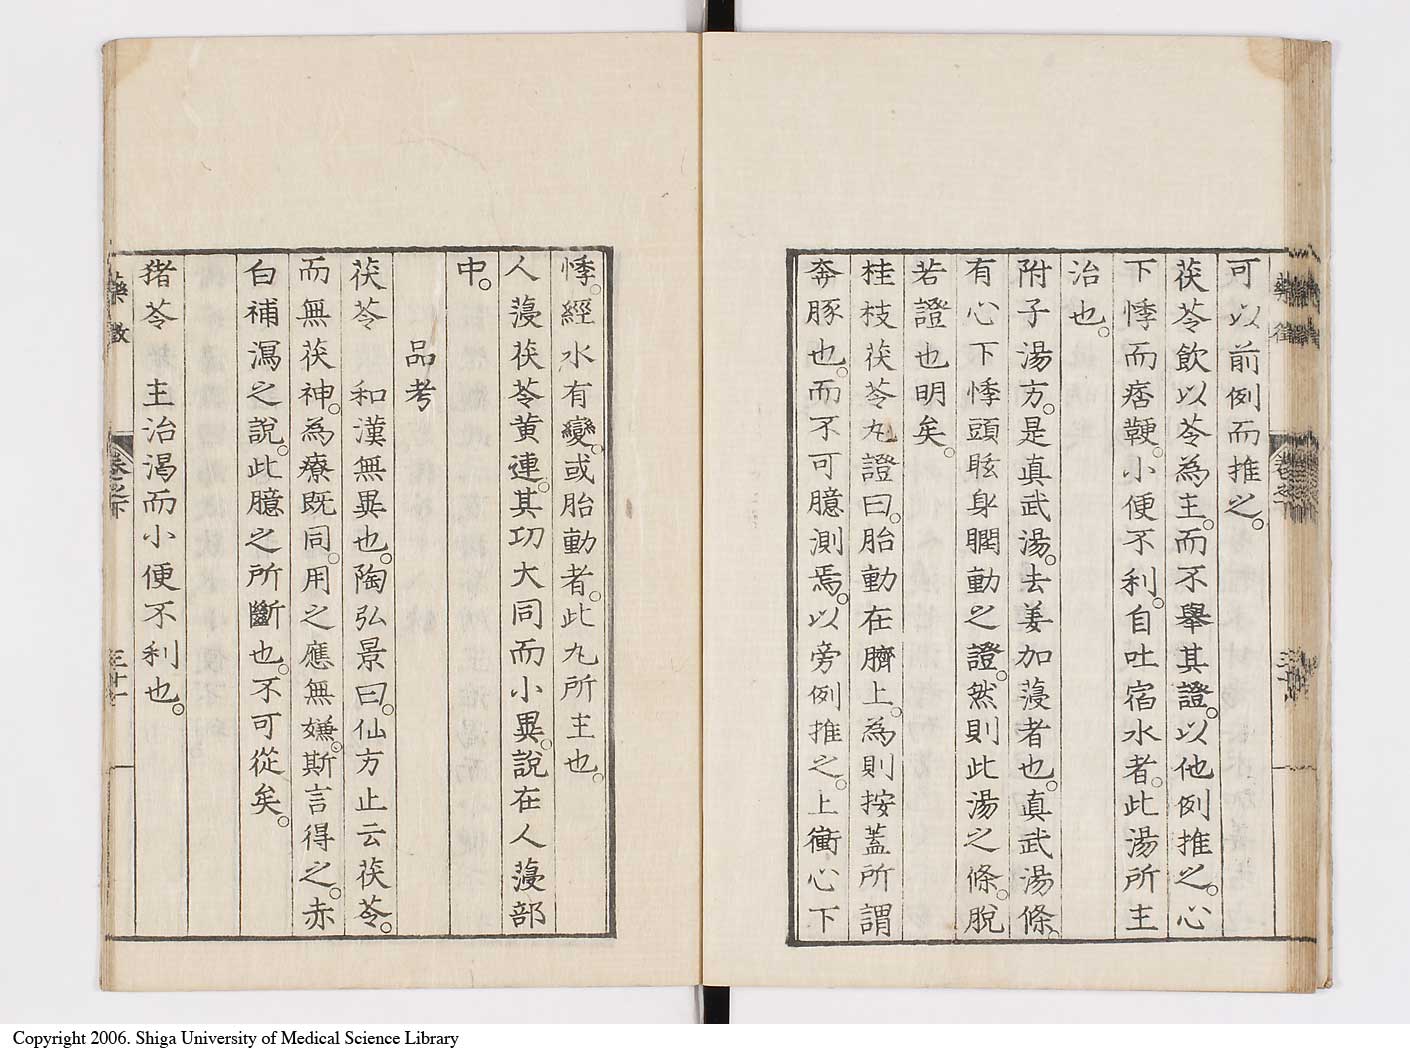 可以前例而推之。
茯苓飲以苓為主。而不舉其證。以他例推之。心
下悸而痞鞕。小便不利。自吐宿水者。此湯所主
治也。
附子湯方。是真武湯。去姜加蓡者也。真武湯條。
有心下悸頭眩身瞤動之證。然則此湯之條。脫
若證也明矣。
桂枝茯苓丸證曰。胎動在臍上。為則按蓋所謂
奔豚也。而不可臆測焉。以旁例推之。上衝心下
悸。經水有變。或胎動者。此丸所主也。
人蓡茯苓黃連。其功大同而小異。說在人蓡部
中。
品考
茯苓 和漢無異也。陶弘景曰。仙方止云茯苓。
而無茯神。為療既同。用之應無嫌。斯言得之。赤
白補瀉之說。此臆之所斷也。不可從矣。
豬苓 主治渴而小便不利也。
藥徵
卷之下
三十一
Copyright 2006. Shiga University of Medical Science Library